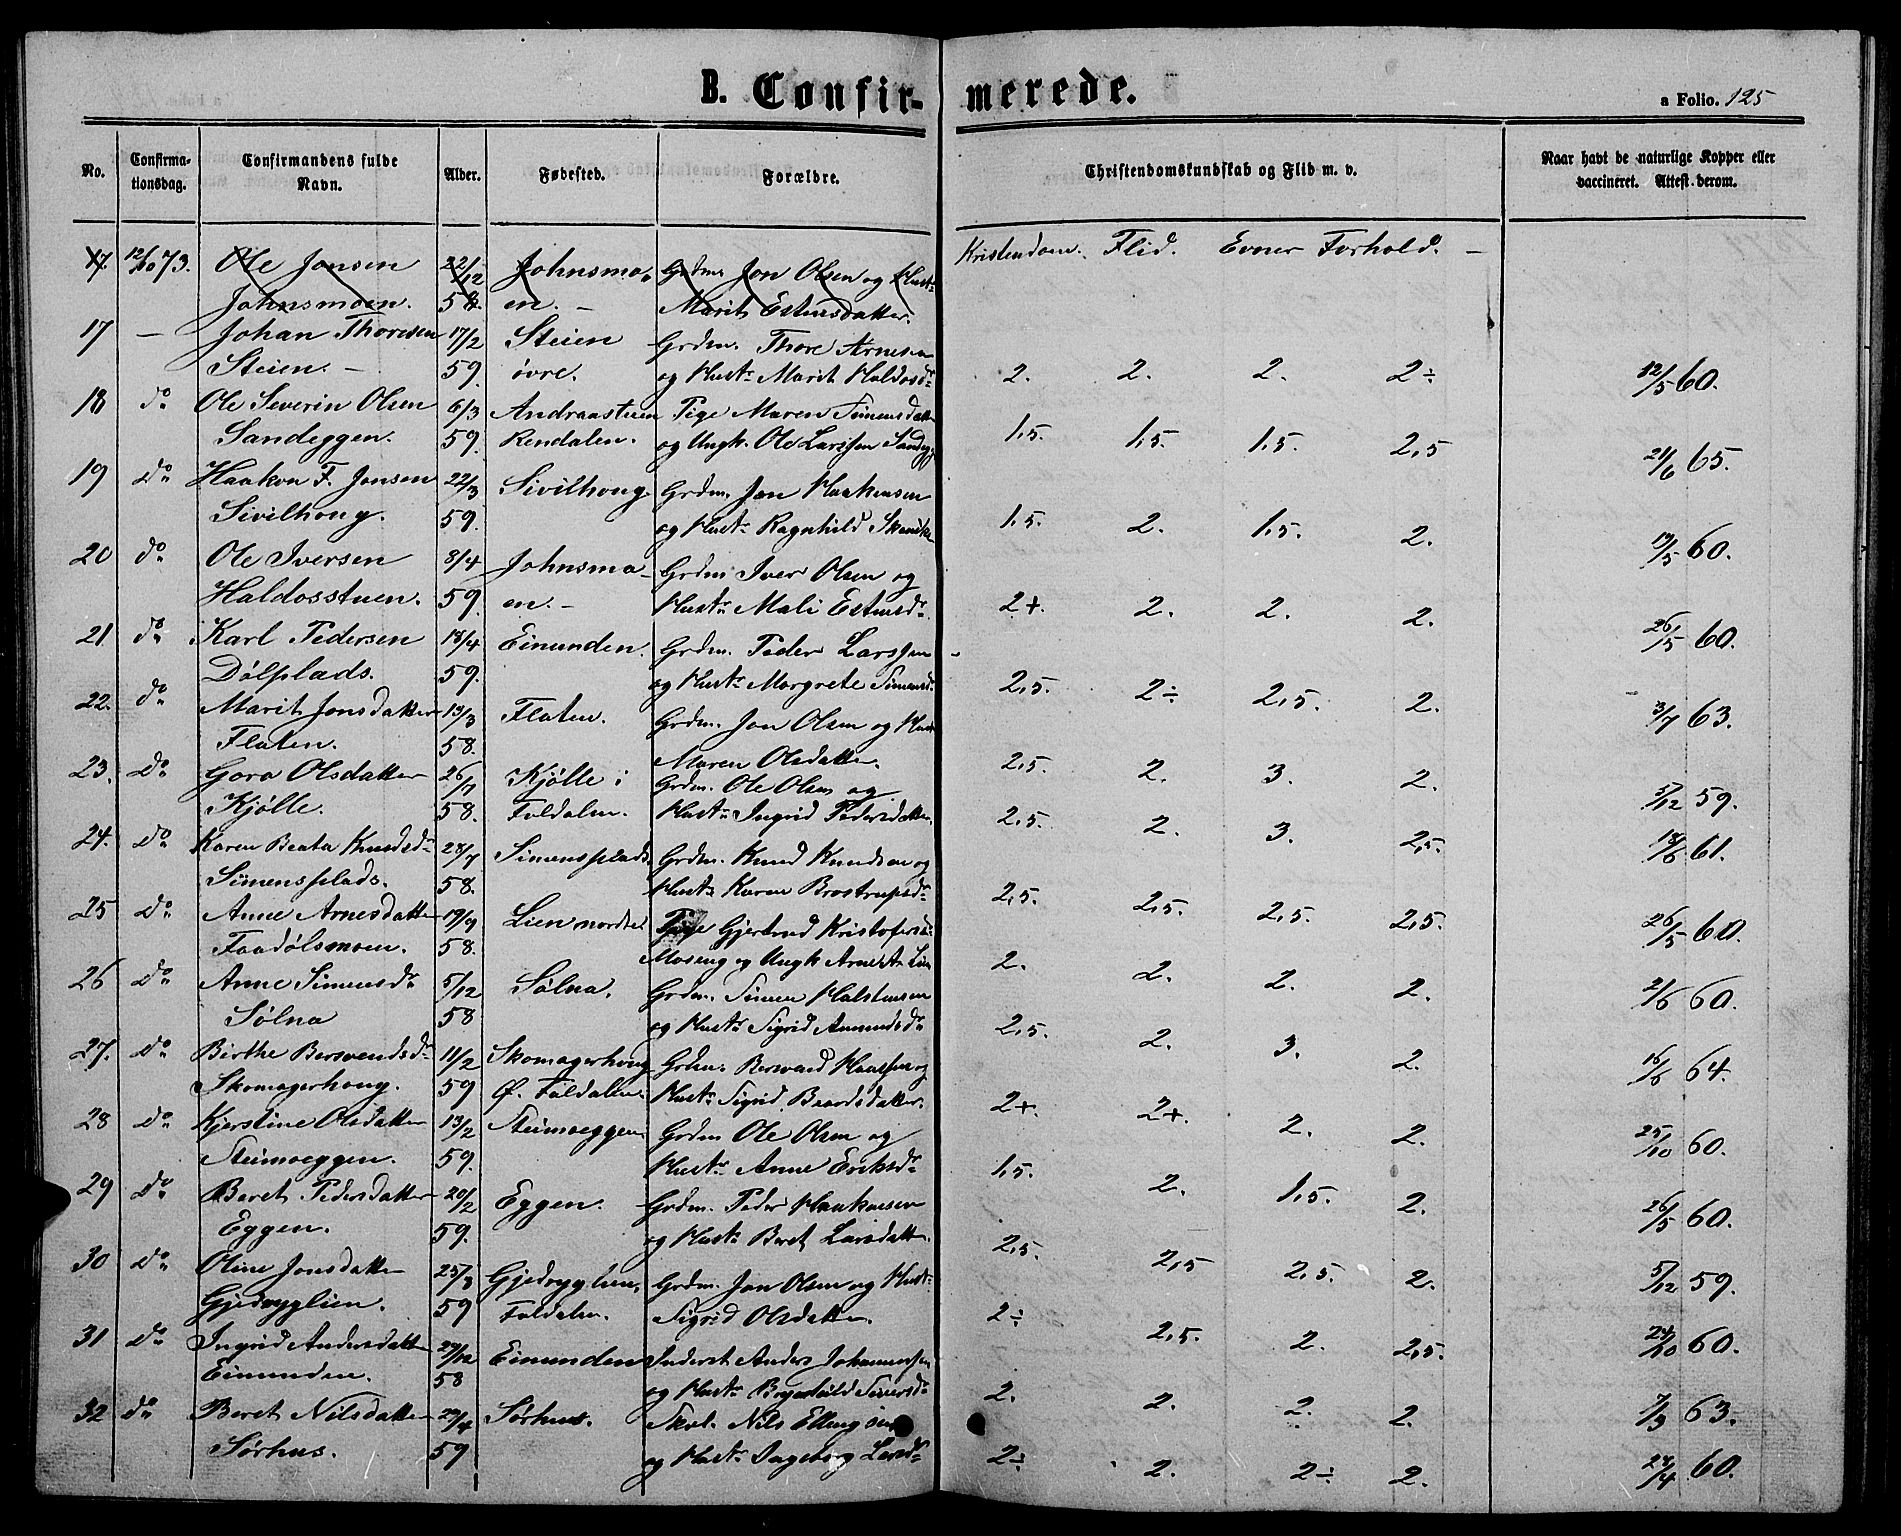 B. Confirmerede.
a Folio. 125
No.
Confirmationsdag.
Confirmandens fulde Navn.
Alder.
Fødested.
Forældre.
Christendomskundskab og Flid m. v.
Naar havt de naturlige Kopper eller vaccineret. Attest derom.
Kristendom. Flid. Evner Forhold. –
17. 12/10 73. Ole Jonsen 22/12 Johnsmo- Grdm. Jon Olsen og Hust:
Johnsmoen. 58. en. – Marit Estensdatter.
17 – Johan Thoresen 17/2 Steien Grdm. Thore Arnesen
Steien. – 59. øvre. og Hustr Marit Haldosdr 2. 2. 2. 2÷ 12/5 60.
18 do Ole Severin Olsen 6/3 Andraastuen Pige Maren Simensdatter
Sandeggen. 59. Rendalen. og Ungk. Ole Larssen 1,5. 1,5. 1,5. 2,5 21/6 65.
19 Do Haakon F. Jonsen 22/3 Sivilhoug Grdm. Jon Haakensen
Sivilhoug. 59. og Hustr Ragnhild 1,5. 2. 1,5. 2. 60.
20 do Ole Iversen 8/4 Johnsmo- Grdm Iver Olsen og
Haldosstuen. 59. en. – Hustr Mali Estensdr 2+. 2. 2. 2. 26/5 60.
21 do Karl Pedersen 18/4 Einunden. Grdm. Peder Larssen
Dølplads. 59. og Hustr Margrete Simensdr 2,5. 2÷ 2,5. 2. 3/7 63.
22. do Marit Jonsdatter 13/3 Flaten. Grdm. Jon Olsen og Hust
Flaten. 58. Maren Olsdatter. 2,5. 2. 3. 2. 5/12 59.
23. Do Gora Olsdatter 26/7 Kjølle i Grdm. Ole Olsen og
Kjølle. 58. Foldalen. Hustr Ingrid Pedersdatter. 2,5. 2. 3. 2,5. 18/6 61.
24. Do Karen Beata Knudsdr 28/7 Simensplads. Grdm. Knud Knudsen og
Simensplads. 58. Hustr Karen Brostrupsdr 2,5. 2,5. 2,5. 2,5. 26/5 60.
25 Do Anne Arnesdatter 19/9 Lien nordre Pige Gjertrud Kristofersdr
Faadølsmoen. 58. Moseng og Ungk Arne A. Lien 2. 2. 2. 2. 2/6 60.
26 Do Anne Simensdr 5/12 Sølna. Grdm. Simen Halstensen
Sølna 58 og Hustr Sigrid Amundsdr 2,5. 2. 3. 2. 16/6 64.
27. Do Birthe Bersvendsdr 11/2 Skomagerhoug Grdm. Bersvend Hanssen og
Skomagerhoug. 59 Ø. Foldalen. Hustr Sigrid Baardsdatter. 2+. 2+. 2. 2. 25/10 60.
28 Do Kjerstine Olsdatter 13/2 Steimoeggen Grdm Ole Olsen og
Steimoeggen. 59. Hustr Anne Eriksdr 1,5. 2. 1,5. 2. 26/5 60.
29 Do Beret Pedersdatter 20/2 Eggen. Grdm. Peder Haakensen
Eggen. 59. og Hustr Beret Larsdatter. 2,5. 2,5 2,5. 2. 5/12 59.
30 Do Oline Jonsdatter 25/3 Gjedryglien, Grdm. Jon Olsen og Hust:
Gjedryglien. 59 Foldalen. Sigrid Olsdatter. 2÷ 2,5. 2. 2,5. 24/10 60.
31 Do Ingrid Andersdatter 29/12 Einunden Inderst Anders Johannessen
Einunden. 58 og Hustr Brynhild Siversdr 2. 2. 2. 2. 7/9 63.
32 do Beret Nilsdatter 29/4 Sørhus. Skol. Nils Ellingsen
Sørhus. 59 og Hustr Ingeborg Larsdr 2÷ 2. 2÷ 2. 24/4 60.